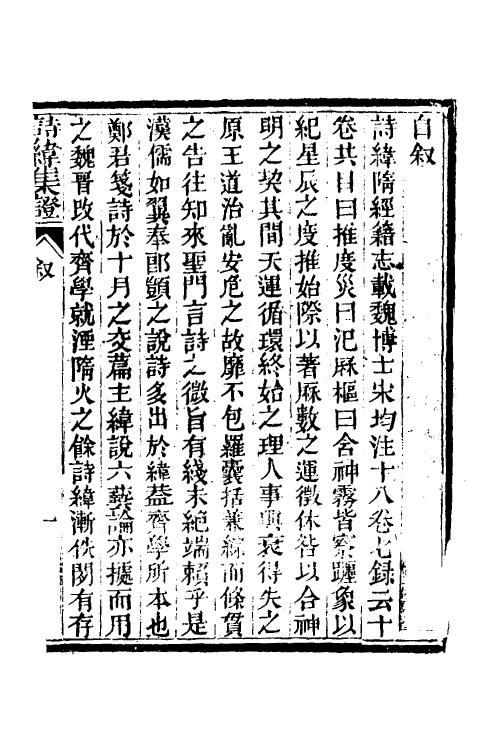 自叙
詩緯隋經籍志載魏博士宋均注十八卷七錄云十
卷其目曰推度災曰汜厤樞曰含神霧皆察躔象以
紀星辰之度推始際以著厤數之運徵休咎以合神
明之契其間天運循環終始之理人事興衰得失之
原王道治亂安危之故靡不包羅囊括兼綜而條貫
之告往知來聖門言詩之微旨有綫未絕端賴乎是
漢儒如翼奉郎顗之說詩多出於緯葢齊學所本也
鄭君箋詩於十月之交篇主緯說六藝論亦據而用
之魏晉改代齊學就湮隋火之餘詩緯漸佚閒有存
詩緯集證
叙
一